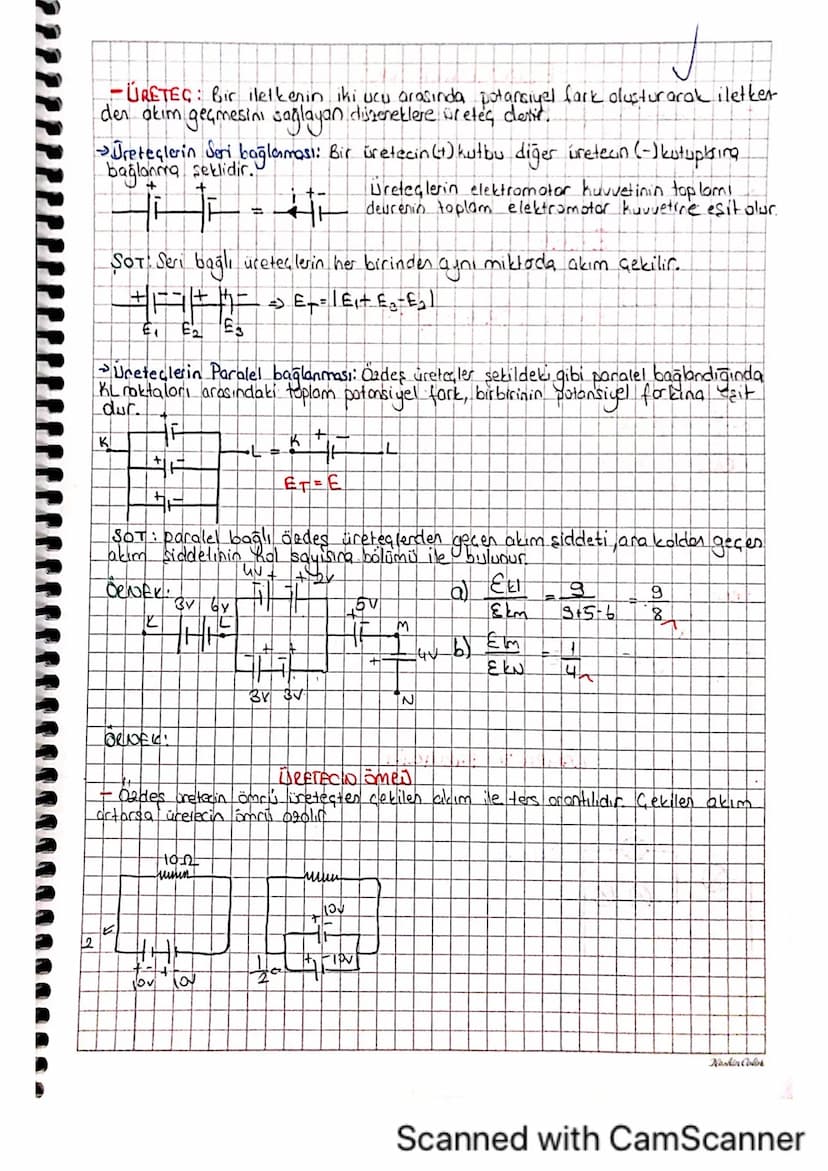 - ÜRETEÇ: Bir iletkenin iki ucu arasında potansiyel fark oluşturarak iletken
den akım geçmesini sağlayan düzeneklere üreteç denir.
→ Üreteçlerin Seri bağlanması: Bir üretecin (+) kutbu diğer üretecin (-) kutupbına
bağlanma şeklidir.
+ + = i + -
Üreteçlerin elektromotor kuvvetinin toplamı
devrenin toplam elektromotor kuvvetine eşit olur.
ŞOT: Seri bağlı üreteçlerin her birinden aynı miktoda akım çekilir.
+ - - + + - ⇒ ET = |E1 + E3 - E2|
E1 E2 E3
→ Üreteçlerin Paralel bağlanması: Özdeş üreteçler şekildeki gibi paralel bağlandığında
KL noktaları arasındaki toplam potansiyel fark, birbirinin potansiyel farkına eşit
dur.
K + - L = K + - L
ET = E
ŞOT: paralel bağlı özdeş üreteçlerden geçen akım şiddeti, ara koldan geçen
akım şiddetinin kol sayısına bölümü ile bulunur.
ÖRNEK:
4V + + 2V
3V 6V
K L
5V
M
+ 4V
N
3V 3V
a) Ekl / Ekm = 9 / 9+5-6 = 9 / 8
b) Elm / EkN = 1 / 4
ÖRNEK:
ÜRETECİN ÖMRÜ
- Özdeş üretecin ömrü üreteçten çekilen akım ile ters orantılıdır. Çekilen akım
artarsa üretecin ömrü azalır
10Ω
2
+ - + -
10V 10V
+ 10V -
+ - 10V
1/2
Keskin Color
Scanned with CamScanner